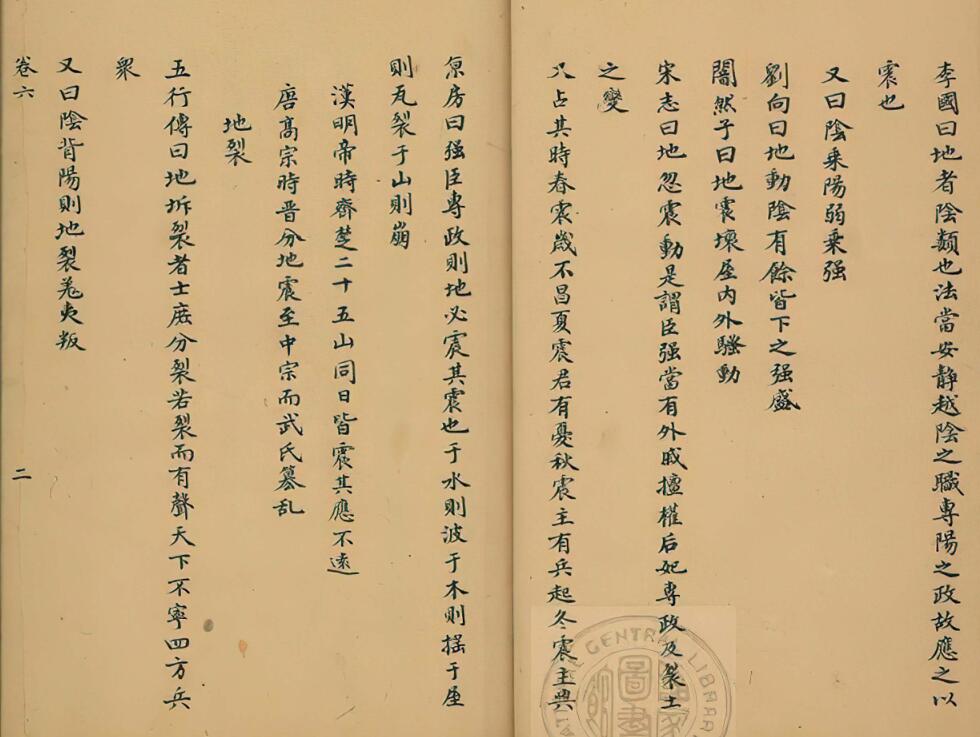 李國曰地者陰類也法當安静越陰之職專陽之政故應之以
震也
又曰陰乘陽弱乘强
劉向曰地動陰有餘皆下之强盛
闇然子曰地震壞屋内外騷動
宋志曰地忽震動是謂臣强當有外戚擅權后妃專政及裂土
之變
又占其時春震歲不昌夏震君有憂秋震主有兵起冬震主興
京房曰强臣專政則地必震其震也于水則波于木則摇于屋
則瓦裂于山則崩
漢明帝時齊楚二十五山同日皆震其應不遠
唐高宗時晋分地震至中宗而武氏篡乱
地裂
五行傳曰地坼裂者士庶分裂若裂而有聲天下不寧四方兵
衆
又曰陰背陽則地裂羗夷叛
卷六
二
CENTRAL LIBRAR
圖書